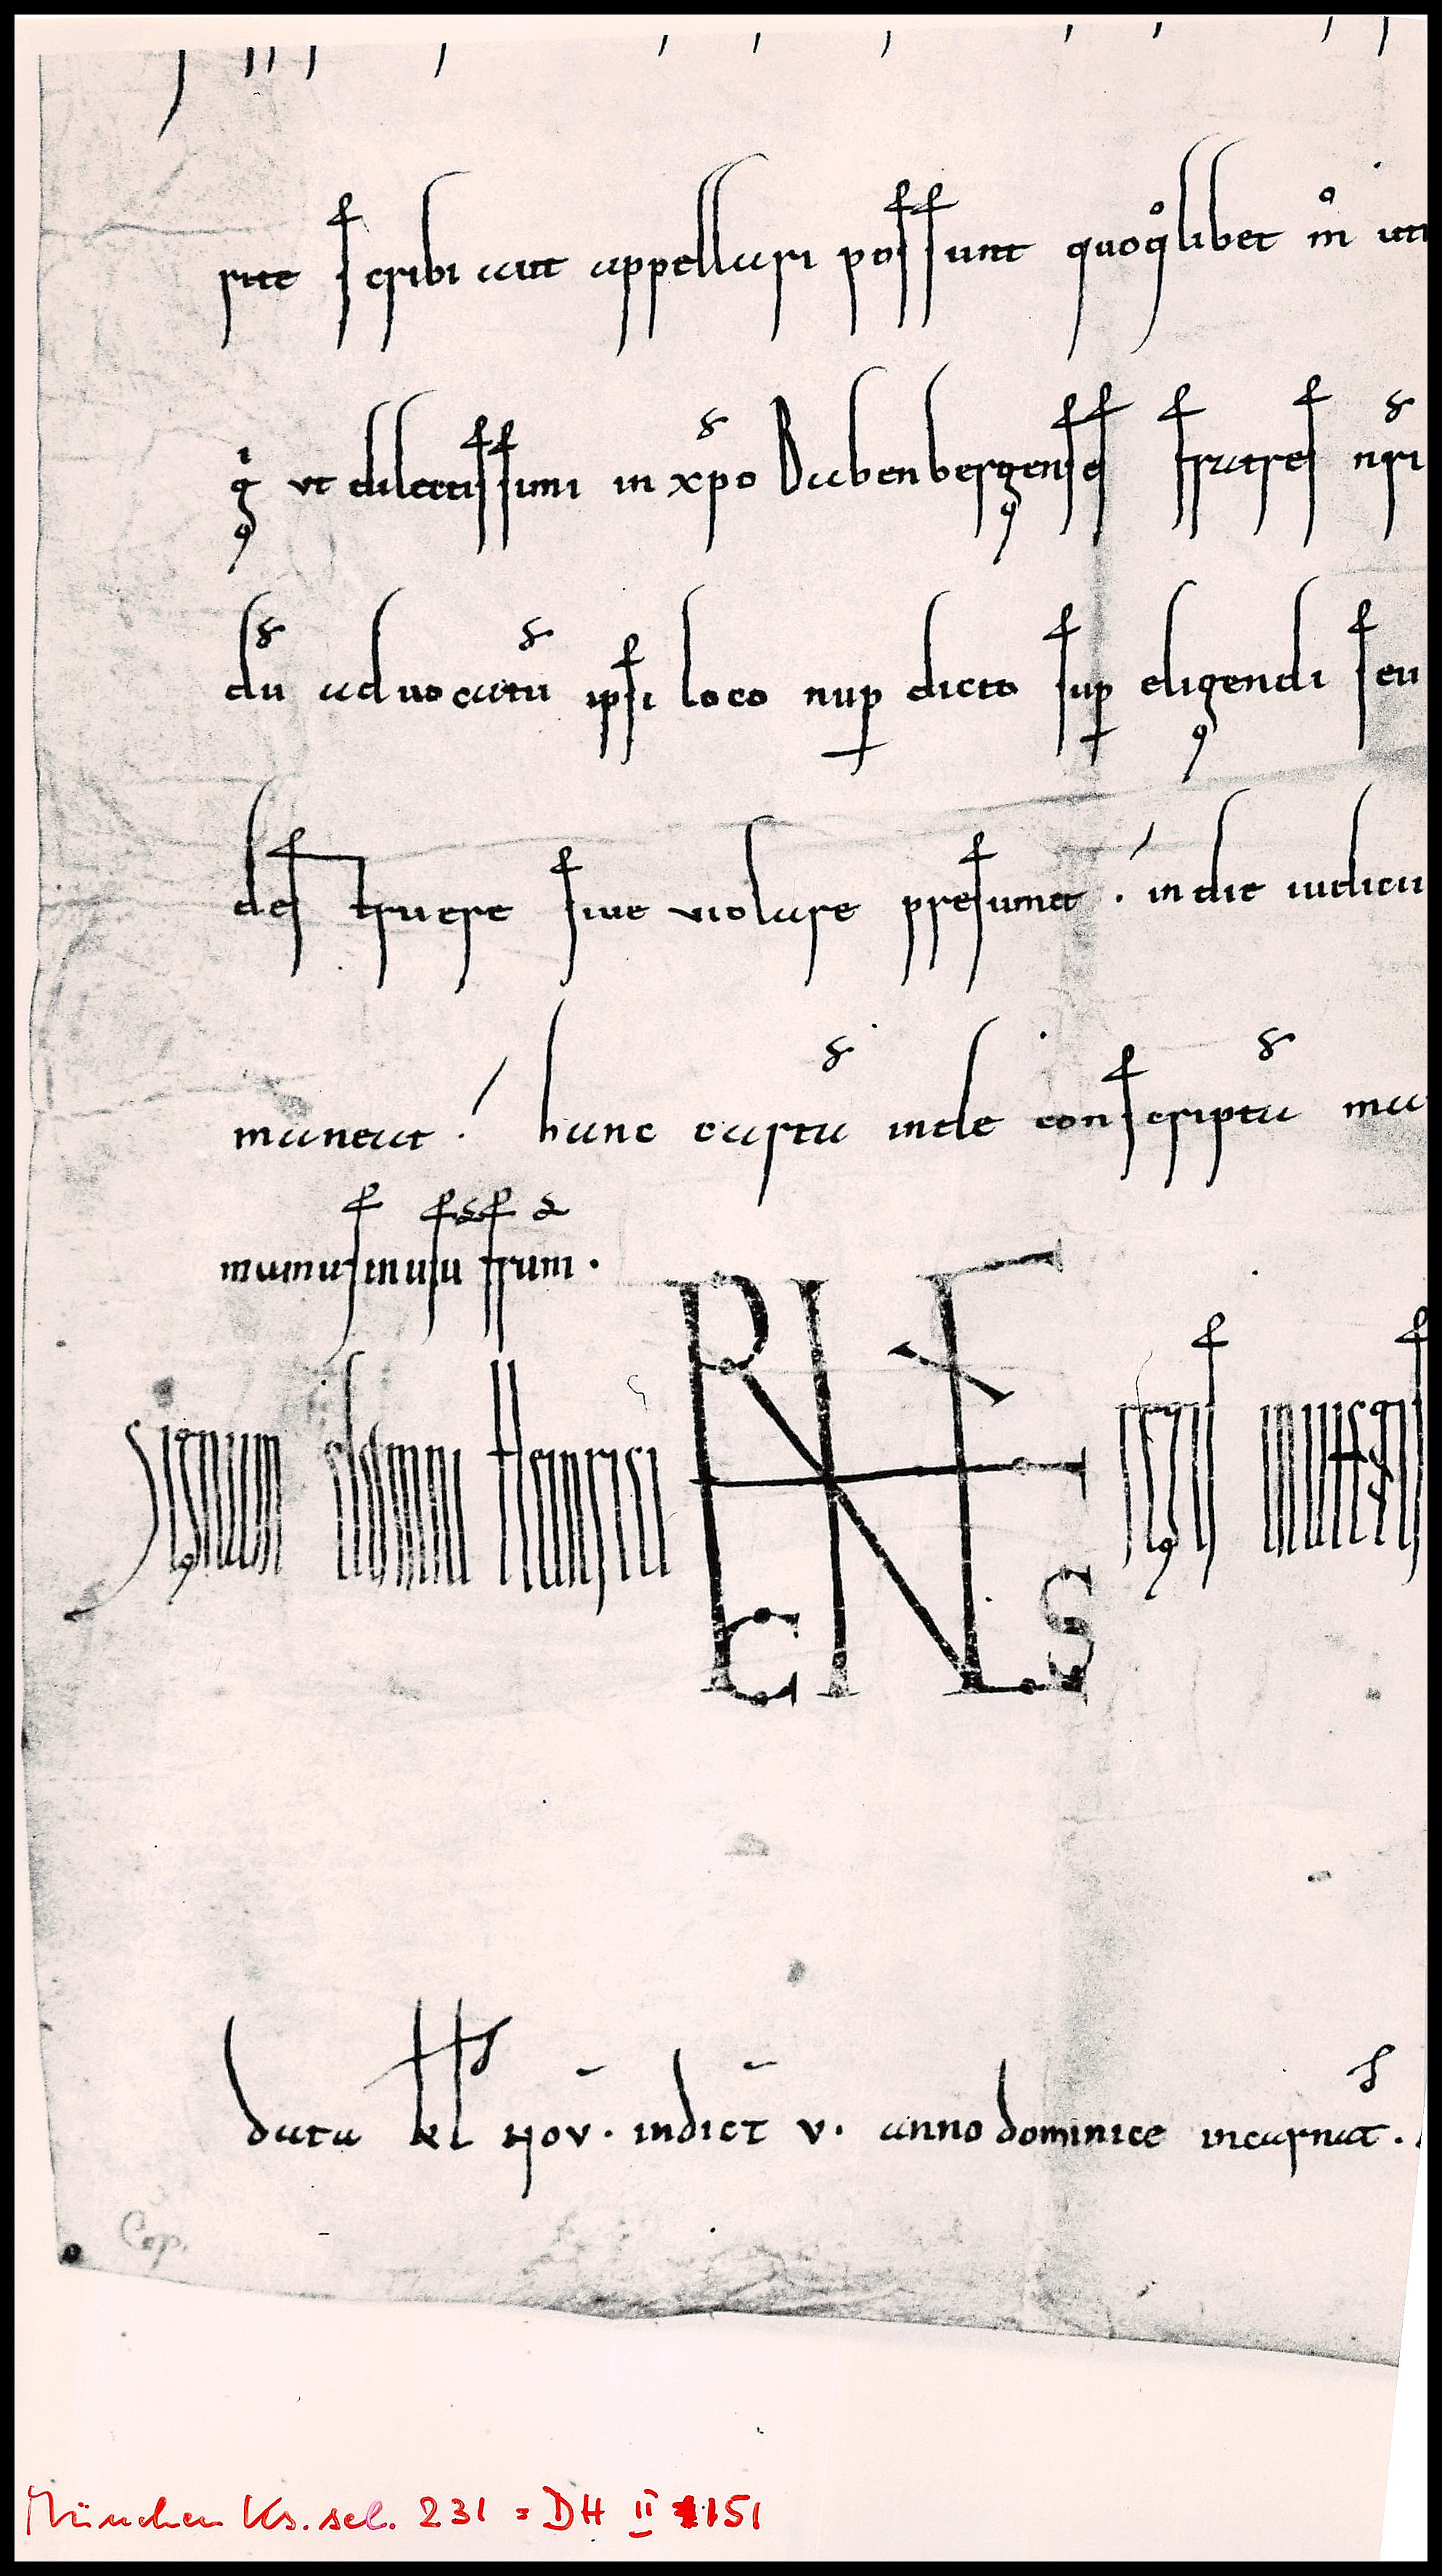 rite scribi aut appellari possunt quoq̊libet m̊ uti
g̊ ut dilectissimi in xp̄o Babenbergenses fratres nr̄i
dū aduocatū ipsi loco nup̲ dicto sup̲ eligendi seu
destruere siue uiolare presumat · in die iudicii
maneat · hanc cartā inde conscriptā ma
manus in usu frm̄ ·
Signum domni Heinrici
regis inuictissi
data kl nov · indict̄ v · anno dominice incarnat̄ ·
Cop.
München Ks. sel. 231 = DH II 151